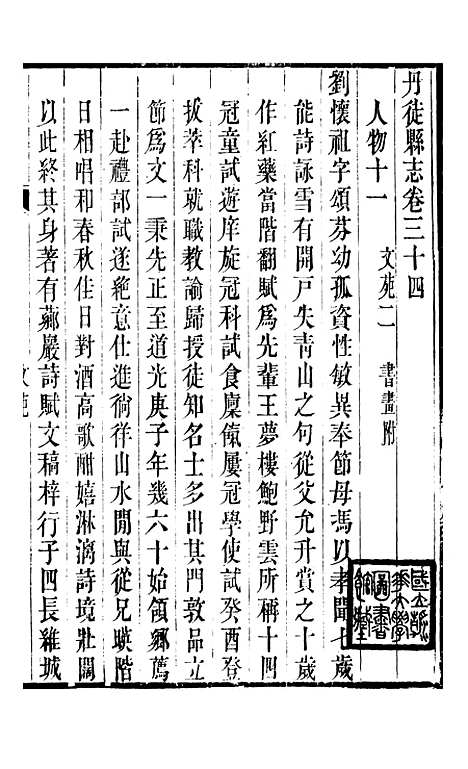 丹徒縣志卷三十四
人物十一　文苑二　書畫附
劉懷祖字頌芬幼孤資性敏異奉節母馮以孝聞七歲
能詩詠雪有開戶失青山之句從父允升賞之十歲
作紅藥當階翻賦爲先輩王夢樓鮑野雲所稱十四
冠童試遊庠旋冠科試食廩餼屢冠學使試癸酉登
拔萃科就職教諭歸授徒知名士多出其門敦品立
節爲文一秉先正至道光庚子年幾六十始領鄉薦
一赴禮部試遂絶意仕進徜徉山水閒與從兄暎階
日相唱和春秋佳日對酒高歌酣嬉淋漓詩境壯闊
以此終其身著有薌巖詩賦文稿梓行子四長維城
文苑